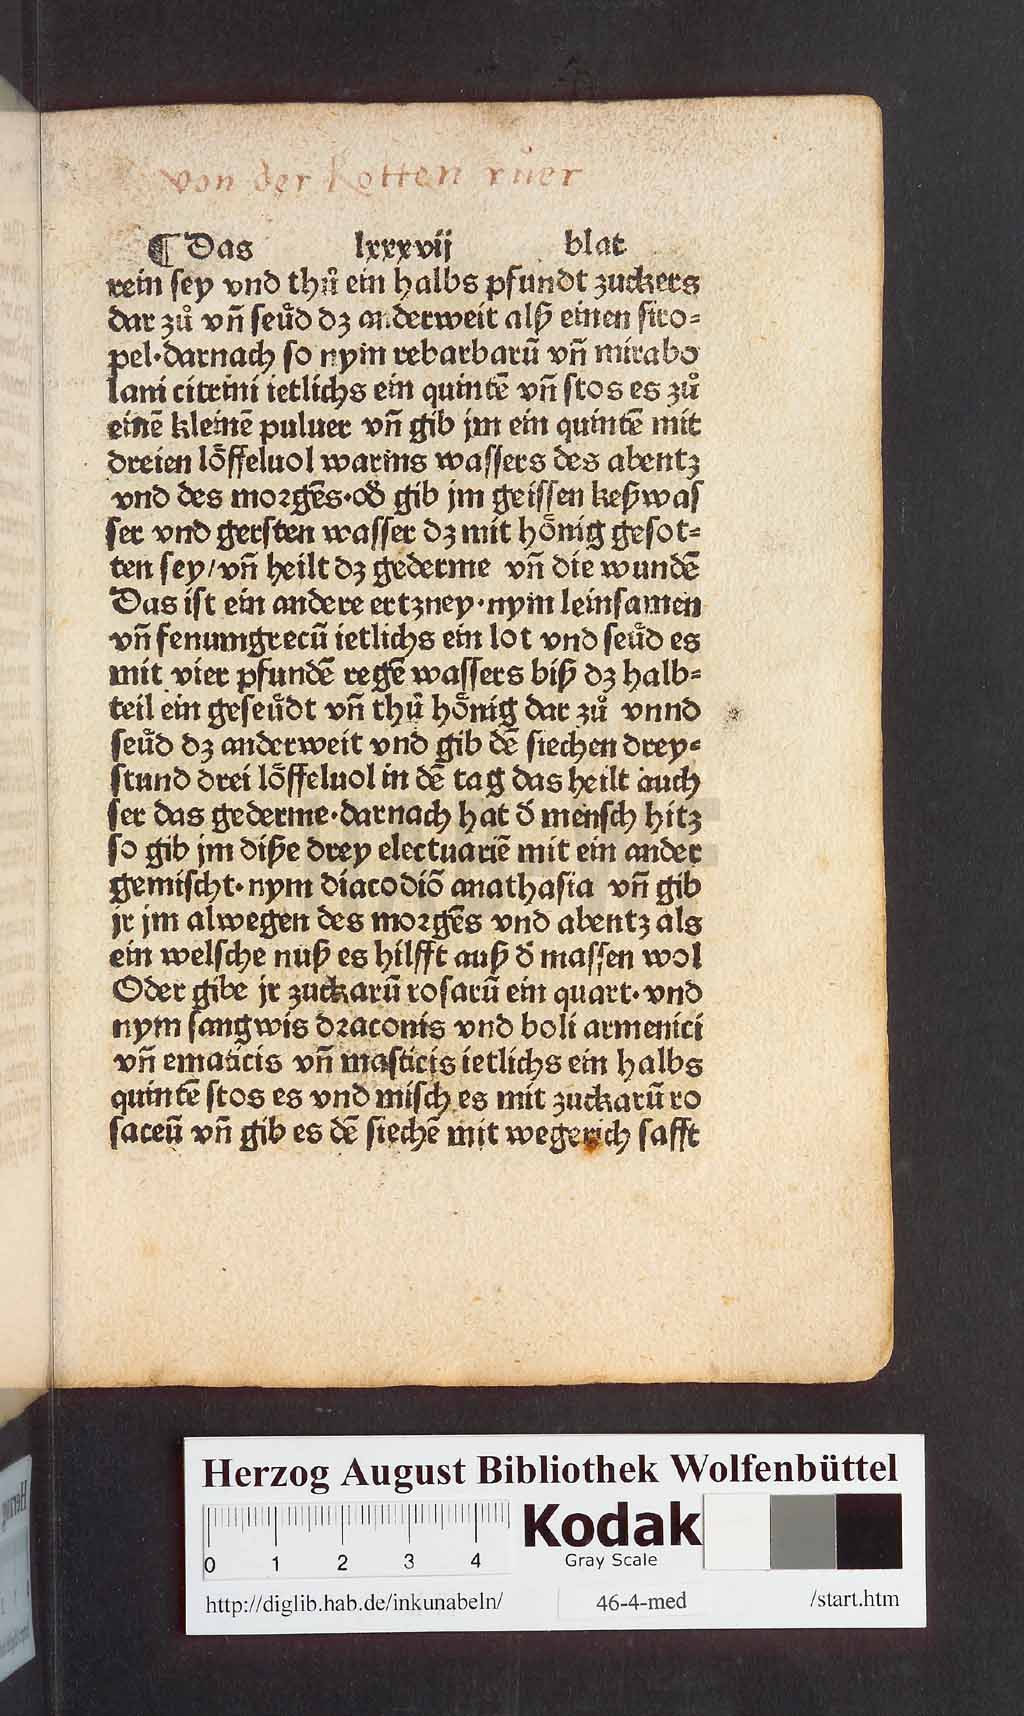 von der Rotten růer
¶ Das lxxxvij blat
rein sey vnd thů ein halbs pfundt zuckers
dar zů vn̄ seu̇d dz anderweit alß einen siro⸗
pel·darnach so nym rebarbarū vn̄ mirabo
lani citrini ietlichs ein quintē vn̄ stos es zů
einē kleinē puluer vn̄ gib jm ein quintē mit
dreien lo̊ffeluol warms wassers des abentz
vnd des morgēs·od̓ gib jm geissen keßwas
ser vnd gersten wasser dz mit ho̊nig gesot⸗
ten sey/vn̄ heilt dz gederme vn̄ die wundē
Das ist ein andere ertzney·nym leinsamen
vn̄ fenumgrecū ietlichs ein lot vnd seůd es
mit vier pfundē regē wassers biß dz halb⸗
teil ein geseůdt vn̄ thů ho̊nig dar zů vnnd
seůd dz anderweit vnd gib dē siechen drey⸗
stund drei lo̊ffeluol in dē tag das heilt auch
ser das gederme·darnach hat d̓ mensch hitz
so gib jm diße drey electuariē mit ein ander
gemischt·nym diacodiō anathasia vn̄ gib
jr jm alwegen des morgēs vnd abentz als
ein welsche nuß es hilfft auß d̓ massen wol
Oder gibe jr zuckarū rosarū ein quart·vnd
nym sangwis draconis vnd boli armenici
vn̄ ematicis vn̄ masticis ietlichs ein halbs
quintē stos es vnd misch es mit zuckarū ro
saceū vn̄ gib es dē siechē mit wegerich safft
Herzog August Bibliothek Wolfenbüttel
0 1 2 3 4
Kodak
Gray Scale
http://diglib.hab.de/inkunabeln/ 46-4-med /start.htm